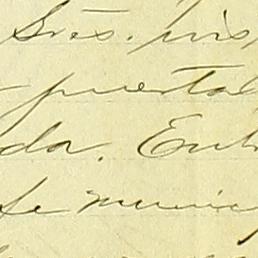 Sres. vis
puertal
da. Ent
se munic